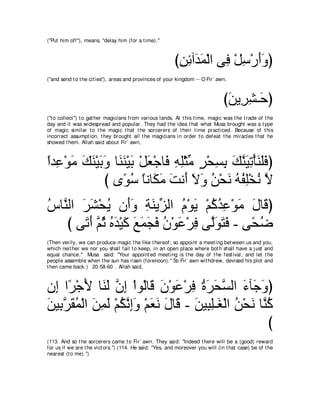 ("Put him off"), means, "delay him (for a time)."
(وَأَرْسِلْ فِى الْمَدَآئِنِ)
("and send to the cities"), areas and provinces of your kingdom -- 'O Fir`awn,
(حَـشِرِينَ)
("to collect") to gather magicians from various lands. At this time, magic was the trade of the
day and it was widespread and popular. They had the idea that what Musa brought was a type
of magic similar to the magic that the sorcerers of their time practiced. Because of this
incorrect assumption, they brought all the magicians in order to defeat the miracles that he
showed them. Allah said about Fir`awn,
(فَلَنَأْتِيَنَّكَ بِسِحْرٍ مِّثْلِهِ فَاجْعَلْ بَيْنَنَا وَبَيْنَكَ مَوْعِداً
لاَّ نُخْلِفُهُ نَحْنُ وَلاَ أَنتَ مَكَاناً سُوًى )
(قَالَ مَوْعِدُكُمْ يَوْمُ الزِّينَةِ وَأَن يُحْشَرَ النَّاسُ
ضُحًى - فَتَوَلَّى فِرْعَوْنُ فَجَمَعَ كَيْدَهُ ثُمَّ أَتَى )
(Then verily, we can produce magic the like thereof; so appoint a meeting between us and you,
which neither we nor you shall fail to keep, in an open place where both shall have a just and
equal chance." Musa said: "Your appointed meeting is the day of the festival, and let the
people assemble when the sun has risen (forenoon)." So Fir`awn withdrew, devised his plot and
then came back.) 20:58-60 . Allah said,
(وَجَآءَ السَّحَرَةُ فِرْعَوْنَ قَالُواْ إِنَّ لَنَا لأَجْرًا إِن
كُنَّا نَحْنُ الْغَـلِبِينَ - قَالَ نَعَمْ وَإِنَّكُمْ لَمِنَ الْمُقَرَّبِينَ
)
(113. And so the sorcerers came to Fir`awn. They said: "Indeed there will be a (good) reward
for us if we are the victors.") (114. He said: "Yes, and moreover you will (in that case) be of the
nearest (to me).")